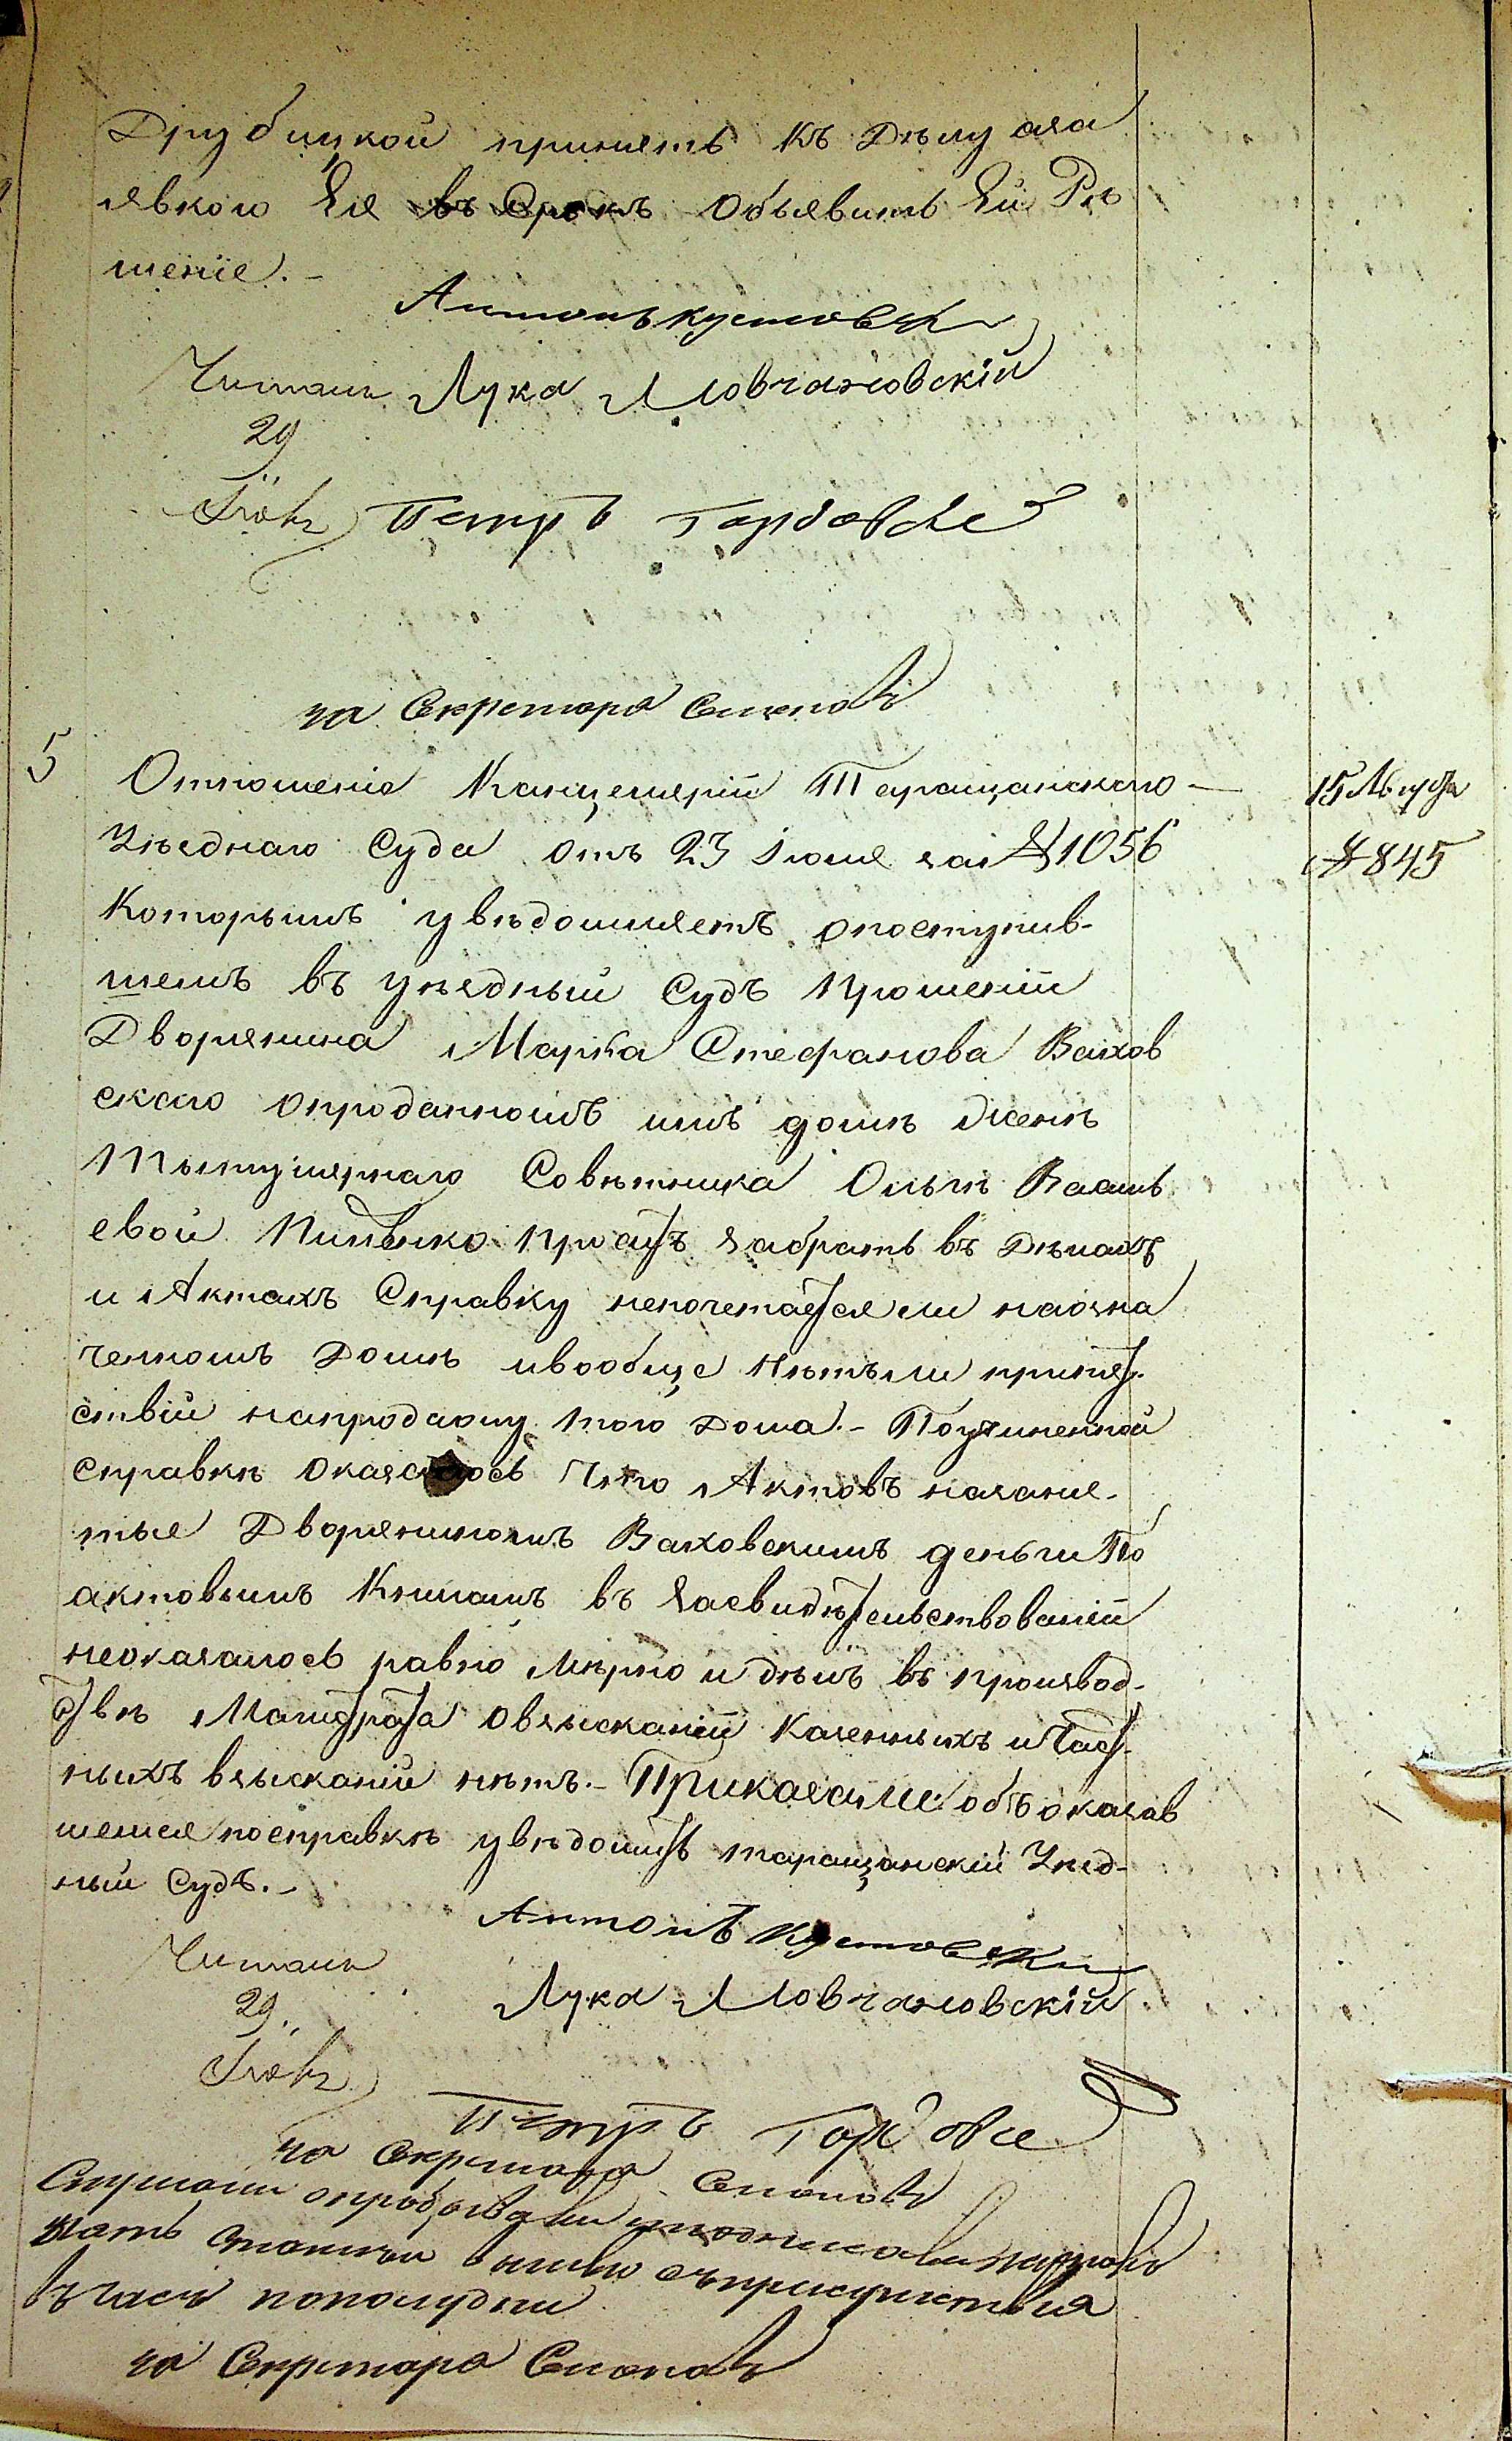 Друбицкой принять къ Дѣлу а за
явкою Ея въ Срокъ Объявить Ей Рѣ
шеніе.-
Антонъ Кустовск
Читалъ Лука Мовчановскій
29
Петръ Горбовсе
за Секретаря Семеновъ
5 Отношеніе Канцеляріи Таращанского —
15 Августа
Уѣзднаго Суда отъ 23 іюля за № 1056
№ 845
Которымъ увѣдомляетъ опоступив-
шемъ въ уѣздный Судъ Прошеніи
Дворянина Марка Стефанова Вахов
скаго опроданномъ имъ домѣ женѣ
Тытулярнаго Совѣтника Ольгѣ Василь
евой проситъ Забрать въ Дѣлахъ
и Актахъ Справку непочетается ли наозна
ченномъ Домѣ ивообще нѣтъли припят-
ствій напродажу того Дома.- Поучиненной
Справкѣ оказалось Что Актовъ назаня-
тые Дворяниномъ Ваховскимъ деньги По
актовымъ Книгамъ въ Засвидѣтельствованіи
неоказалось равно мѣрно и дѣлъ въ производ-
ствѣ Магистрата Овзысканіи Казенныхъ и Част-
ныхъ взысканій нѣтъ.- Приказали: объ оказав
шемся посправкѣ увѣдомить таращанскій Уѣзд-
ный Судъ.-
Антонъ Кустовскій
Читалъ
Лука Мовчановскій
29.
Петръ Горбовсе
за Секретаря Семеновъ
Слушали опробовали и подписали
вышли съ присутствія
въ часъ пополудни
за Секретаря Семеновъ